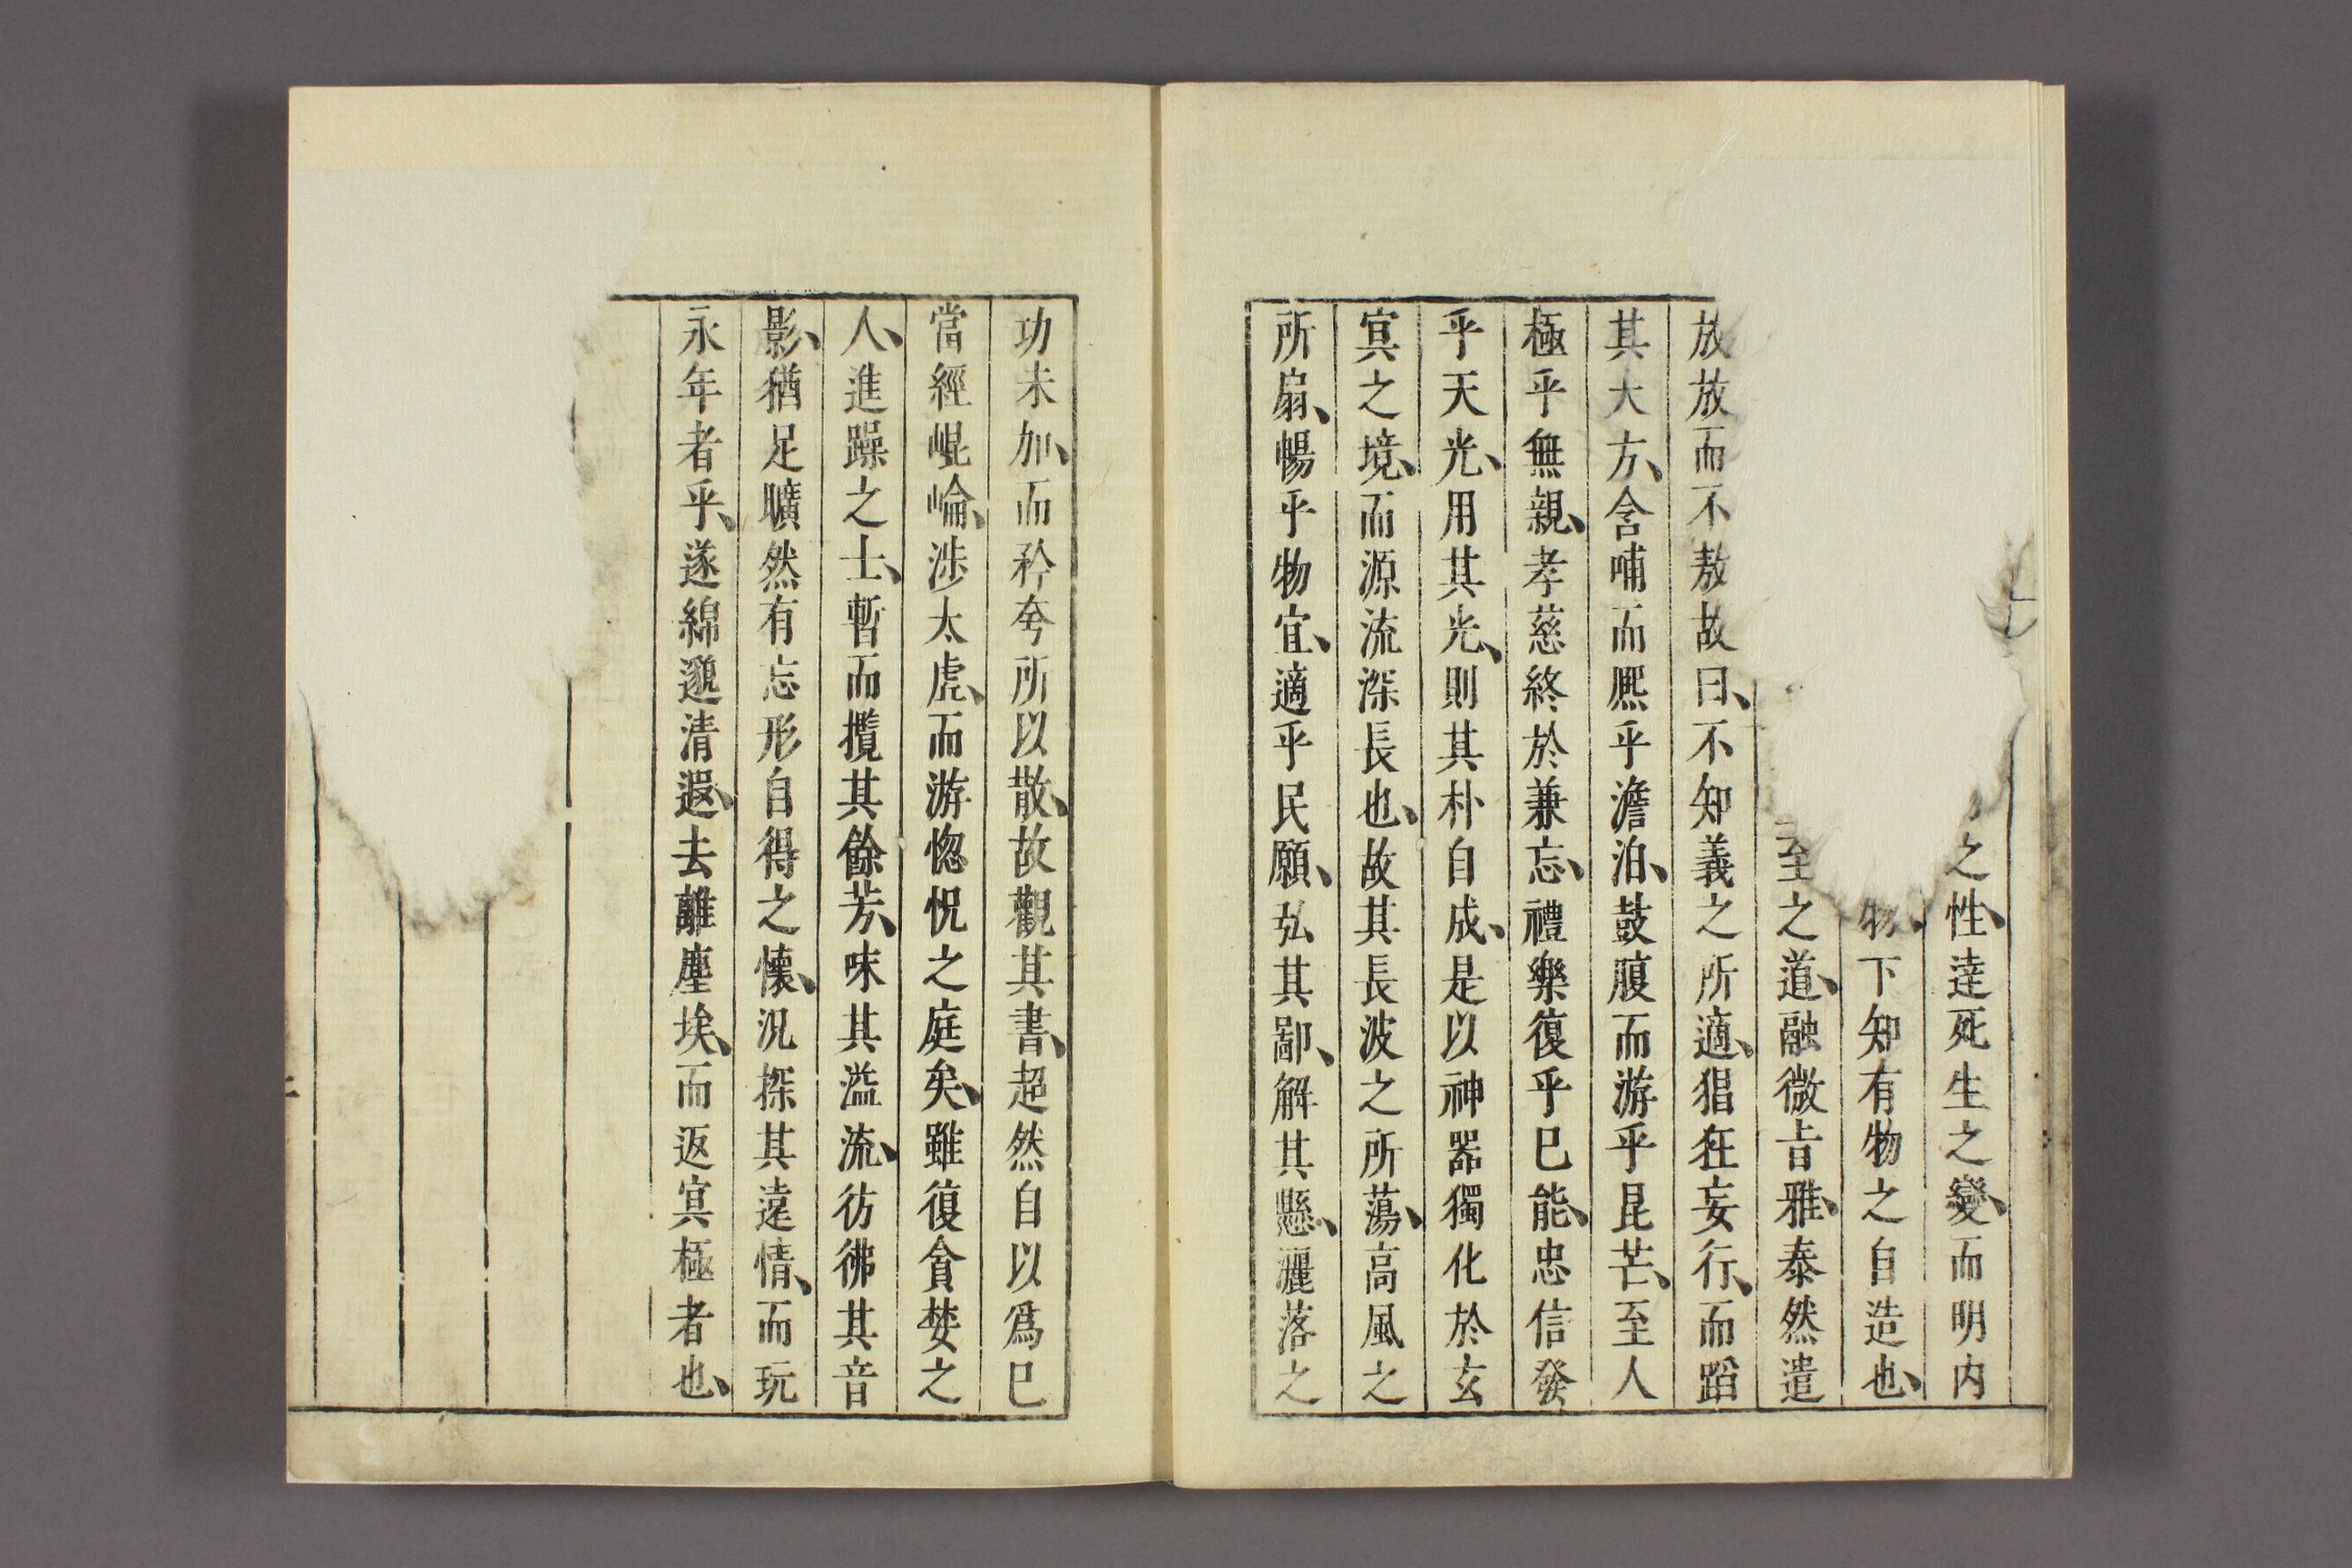 之性、逹死生之變、而明内
物、下知有物之自造也、
至之道、融微旨雅、泰然遣
放放而不敖故曰、不知義之所適、猖狂妄行、而蹈
其大方、含哺而熈乎澹泊、鼓腹而游乎昆芒、至人
極乎無親、孝慈終於兼忘、禮樂復乎巳能、忠信發
乎天光、用其光、則其朴自成、是以神器獨化於玄
冥之境、而源流深長也、故其長波之所蕩、高風之
所扇、暢乎物宜、適乎民願、弘其鄙、解其懸、灑落之
功未加、而矜夸所以散、故觀其書、超然自以爲巳
當經崐崘、涉太虛、而游惚怳之庭矣、雖復貪婪之
人、進躁之士、暫而攬其餘芳、味其溢流、彷彿其音
影、猶足曠然有忘形自得之懷、況探其遠情、而玩
永年者乎、遂綿邈清遐、去離塵埃、而返冥極者也、